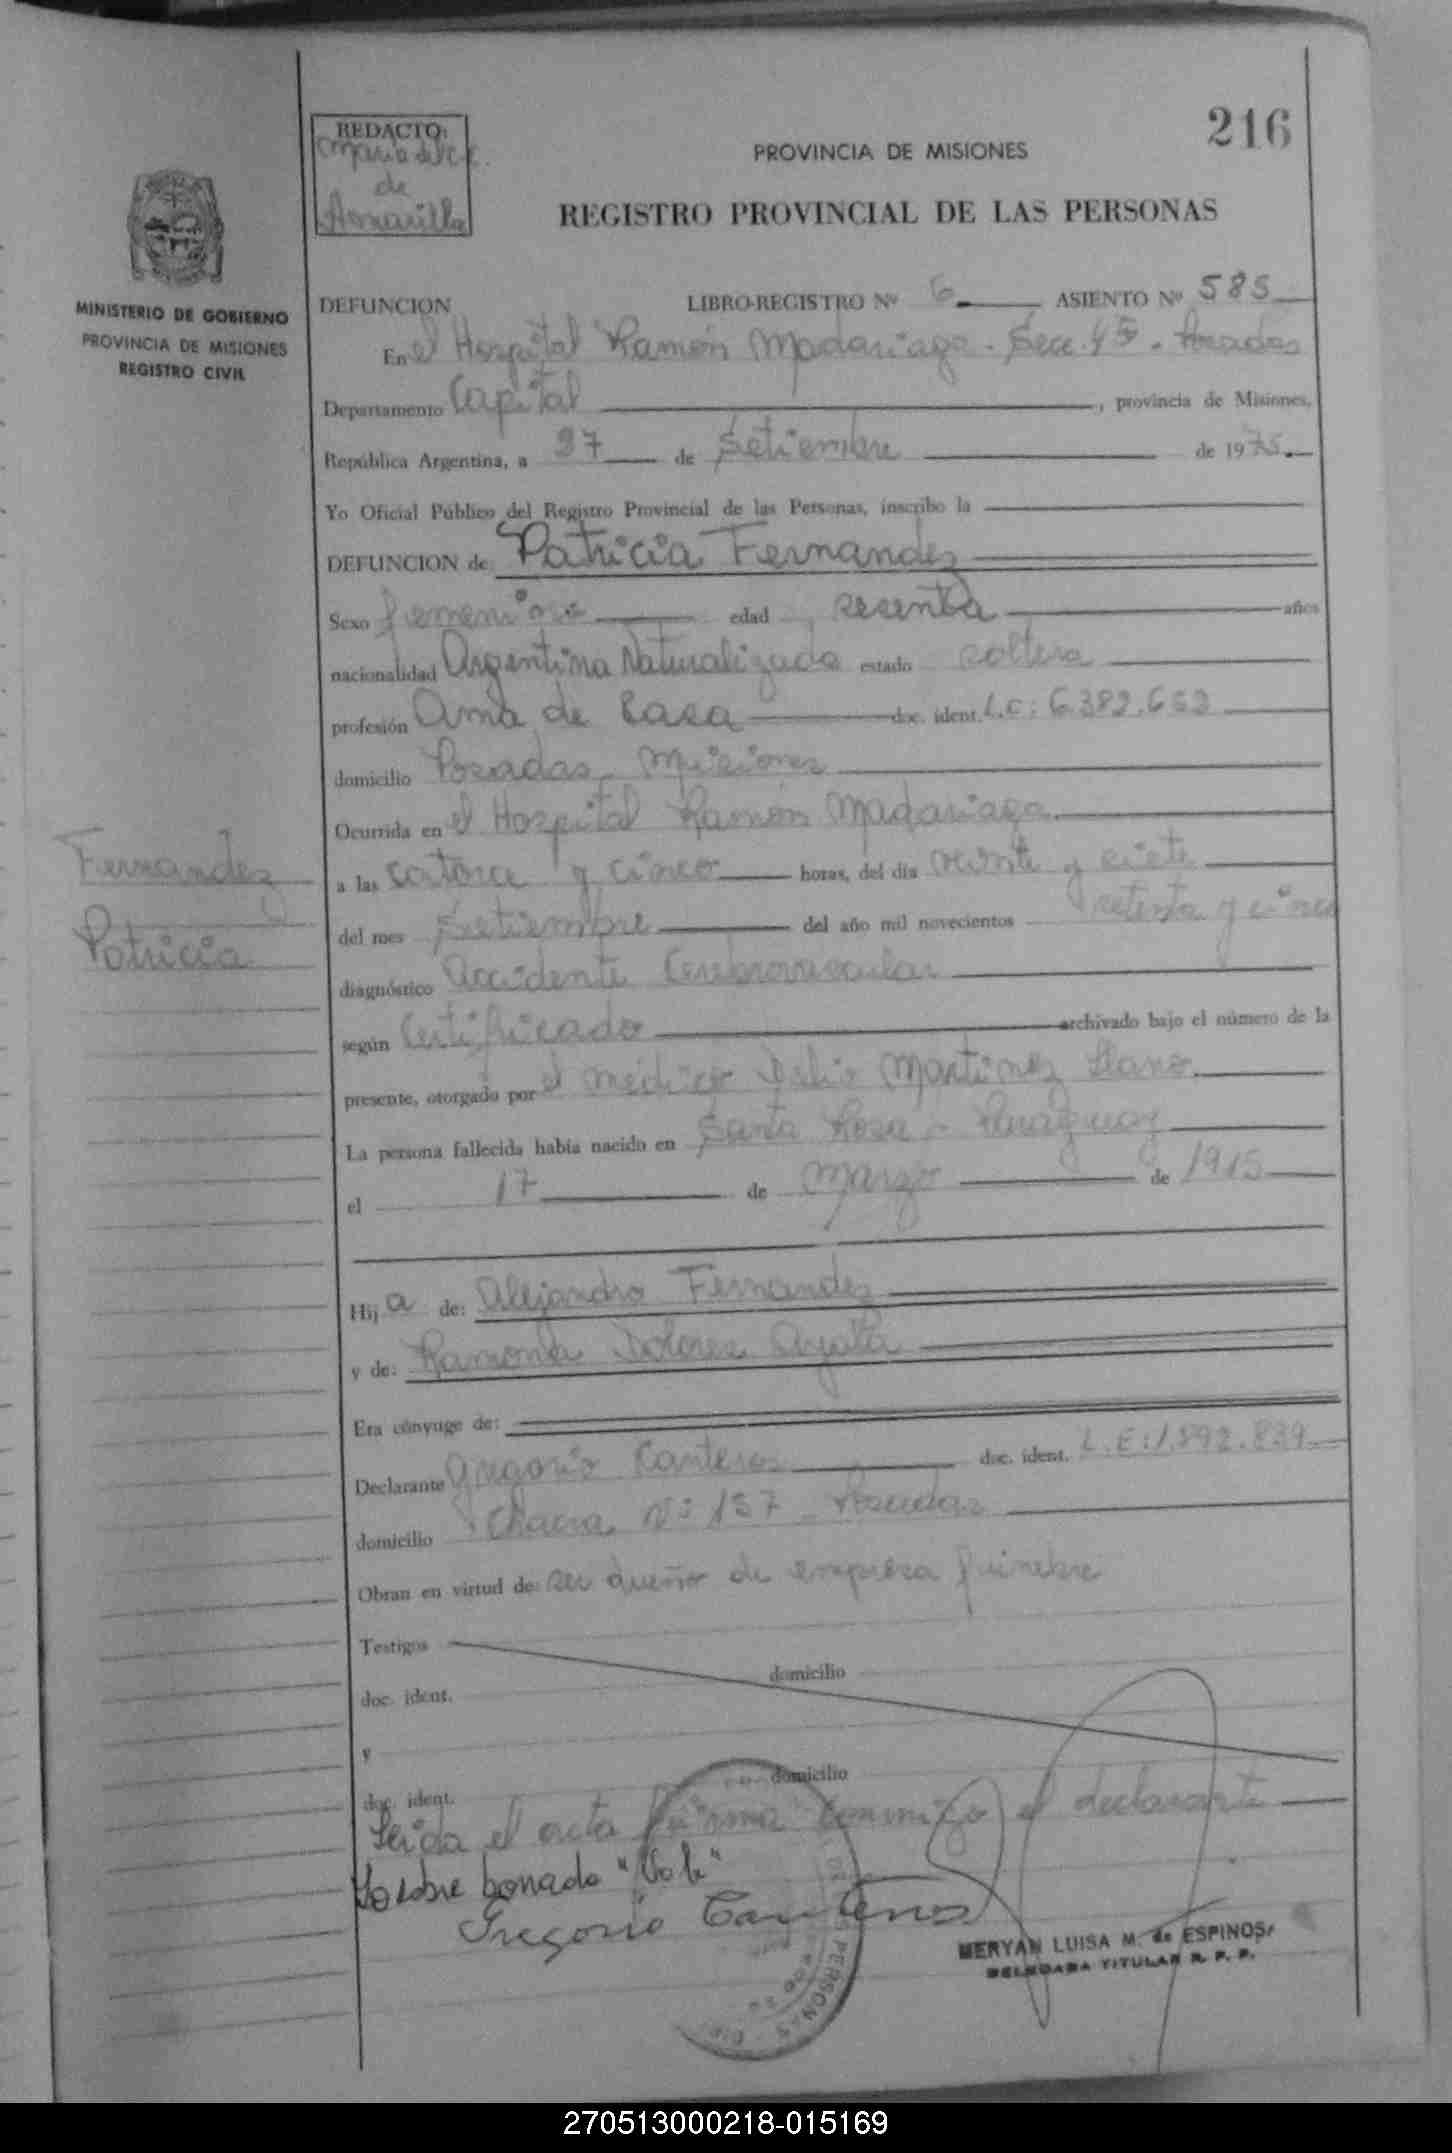 216
REDACTO:
Maria del C. C.
de
Amarilla
PROVINCIA DE MISIONES
REGISTRO PROVINCIAL DE LAS PERSONAS
MINISTERIO DE GOBIERNO
PROVINCIA DE MISIONES
REGISTRO CIVIL
DEFUNCION LIBRO-REGISTRO Nº 6 ASIENTO Nº 585
En el Hospital Ramón Madariaga - Secc. Posadas
Departamento Capital, provincia de Misiones,
República Argentina, a 27 de Setiembre de 1975.
Yo Oficial Público del Registro Provincial de las Personas, inscribo la
DEFUNCION de: Patricia Fernandez
Sexo femenino edad sesenta años
nacionalidad Argentina Naturalizada estado soltera
profesión Ama de Casa doc. ident. L.C: 6.382.652
domicilio Posadas, Misiones
Ocurrida en el Hospital Ramón Madariaga
a las catorce y cinco horas, del día veinte y siete
del mes Setiembre del año mil novecientos setenta y cinco
diagnóstico Accidente Cerebrovascular
según Certificado archivado bajo el número de la
presente, otorgado por el médico Martinez Llano
La persona fallecida había nacido en Santa Rosa - Paraguay
el 17 de Marzo de 1915
Hija de: Alejandro Fernandez
y de: Ramona Dolores Ayala
Era cónyuge de:
Declarante Gregorio Canteros doc. ident. L.E: 1.892.839
domicilio Chacra Nº 137 - Posadas
Obran en virtud de: ser dueño de empresa fúnebre
Testigos
domicilio
doc. ident.
y
domicilio
doc. ident.
Leída el acta firma conmigo el declarante
Gregorio Canteros
Fernandez
Patricia
MERYAN LUISA M. de ESPINOSA
DELEGADA TITULAR R. P. P.
PERSONAS
270513000218-015169